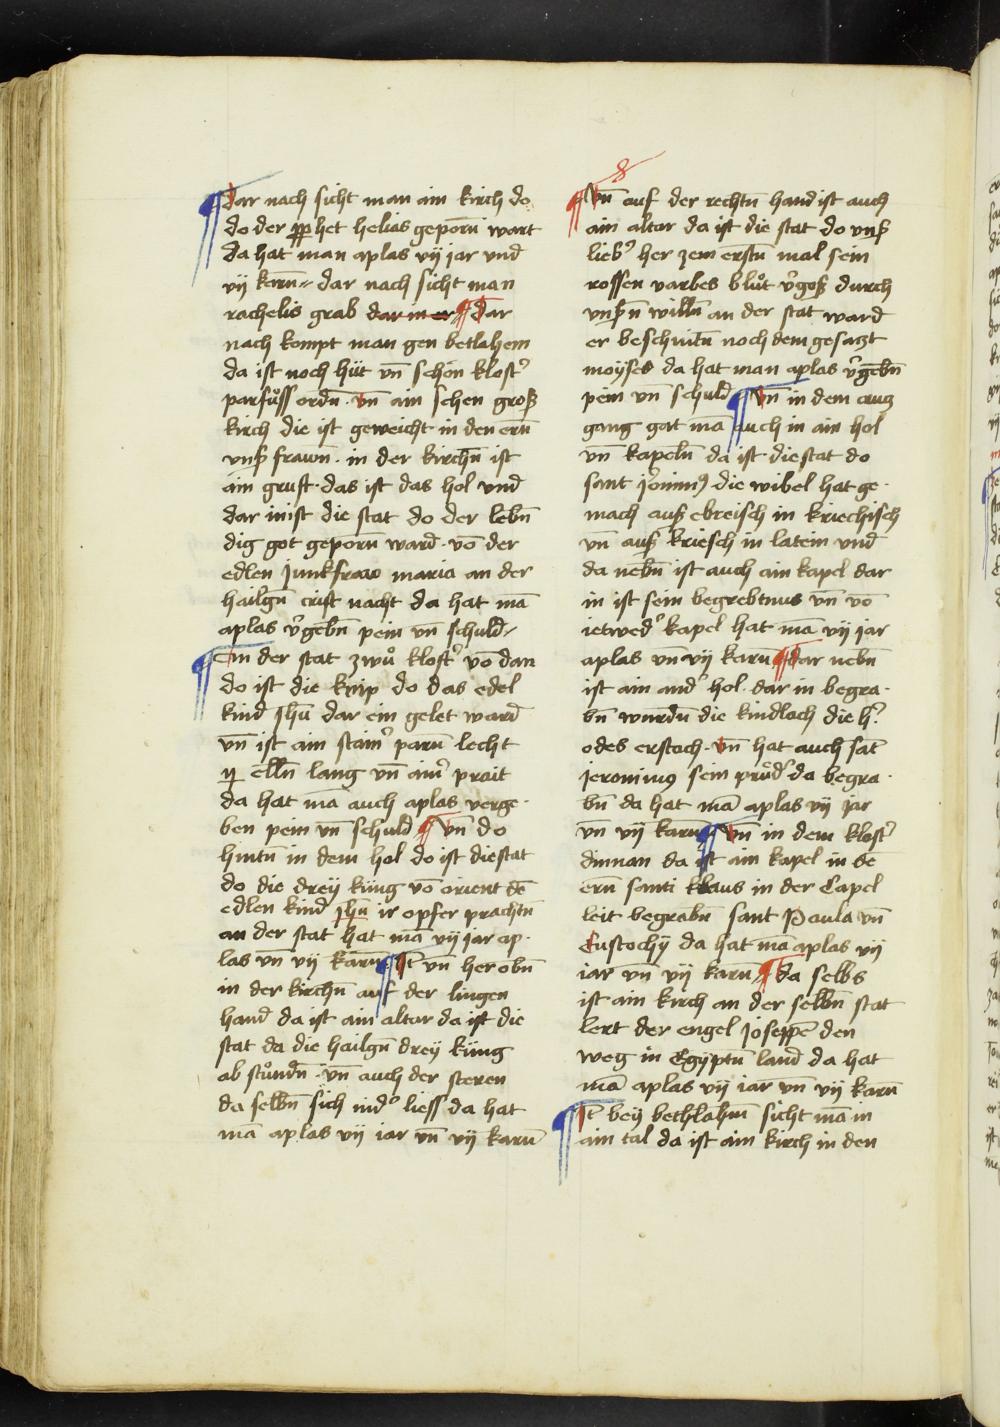 dar nach sicht man ain kirch do
do der ꝓphet helias geporn̄ wart
da hat man aplas vij jar vnd
vij karn̄ dar nach sicht man
rachelis grab dar in er ¶ dar
nach kompt man gen betlahem
da ist noch hüt vn̄ schön klost᷑
parfůss ordn̄ · vn̄ ain schen groß
kirch die ist geweicht in den ern̄
vnß frawn̄ · in der kirchn̄ ist
ain gruft · das ist das hol vnd
dar in ist die stat do der lebn̄
dig got geporn̄ ward · vō der
edlen junkfraw maria an der
hailgn̄ crist nacht da hat mā
aplas v᷑gebn̄ pein vn̄ schuld
¶ In der stat zwů klost᷑ vō dan
do ist die krip do das edel
kind jhū dar ein gelet ward
vn̄ ist ain stain᷑ parn̄ lecht
ij elln̄ lang vn̄ ain᷑ prait
da hat mā auch aplas verge ·
ben pein vn̄ schuld ¶ vn̄ do
hintn̄ in dem hol do ist die stat
do die dreÿ küng vō orient dē
edlen kind jhū ir opfer prachtn̄
an der stat hat mā vij jar ap ·
las vn̄ vij karn̄ ¶ Itē vn̄ her obn̄
in der kirchn̄ auf der lingen
hand da ist ain altar da ist die
stat da die hailgn̄ dreÿ küng
ab stůndn̄ · vn̄ auch der steren
da selbn̄ sich nid᷑ liess da hat
mā aplas vij iar vn̄ vij karn̄
¶ vn̄ auf der rechtn̄ hand ist auch
ain altar da ist die stat do vnß
lieb᷑ her zem erstn̄ mal sein
rossen varbes blůt v᷑goß durch
vnßn̄ willn̄ an der stat ward
er beschnitn̄ noch dem gesatzt
moÿses da hat man aplas v᷑gebn̄
pein vn̄ schuld ¶ vn̄ in dem crutz
gang gat mā auch in ain hol
vn̄ kapeln̄ da ist die stat do
sant die wibel hat ge ·
mach auß ebreisch in kriechisch
vn̄ auß kriesch in latein vnd
da nebn̄ ist auch ain kapel dar
in ist sein begrebtnus vn̄ vō
ietwed᷑ kapel hat mā vij jar
aplas vn̄ vij karn̄ ¶ dar nebn̄
ist ain and᷑ hol · dar in begra ·
bn̄ wurdn̄ die kindlach die h᷑
odes erstach · vn̄ hat auch sāt
jeronimꝯ sein průd᷑ da begra ·
bn̄ da hat mā aplas vij jar
vn̄ vij karn̄ ¶ vn̄ in dem klost᷑
dinnan da ist ain kapel in dē
ern̄ santi klaus in der Capel
leit begrabn̄ sant Paula vn̄
Eustochÿ da hat mā aplas vij
iar vn̄ vij karn̄ ¶ da selbs
ist ain kirch an der selbn̄ stat
lert der engel josepē den
weg in Egÿptn̄ land da hat
mā aplas vij iar vn̄ vij karn̄
¶ Itē beÿ bethlahm̄ sicht mā in
ain tal da ist ain kirch in den